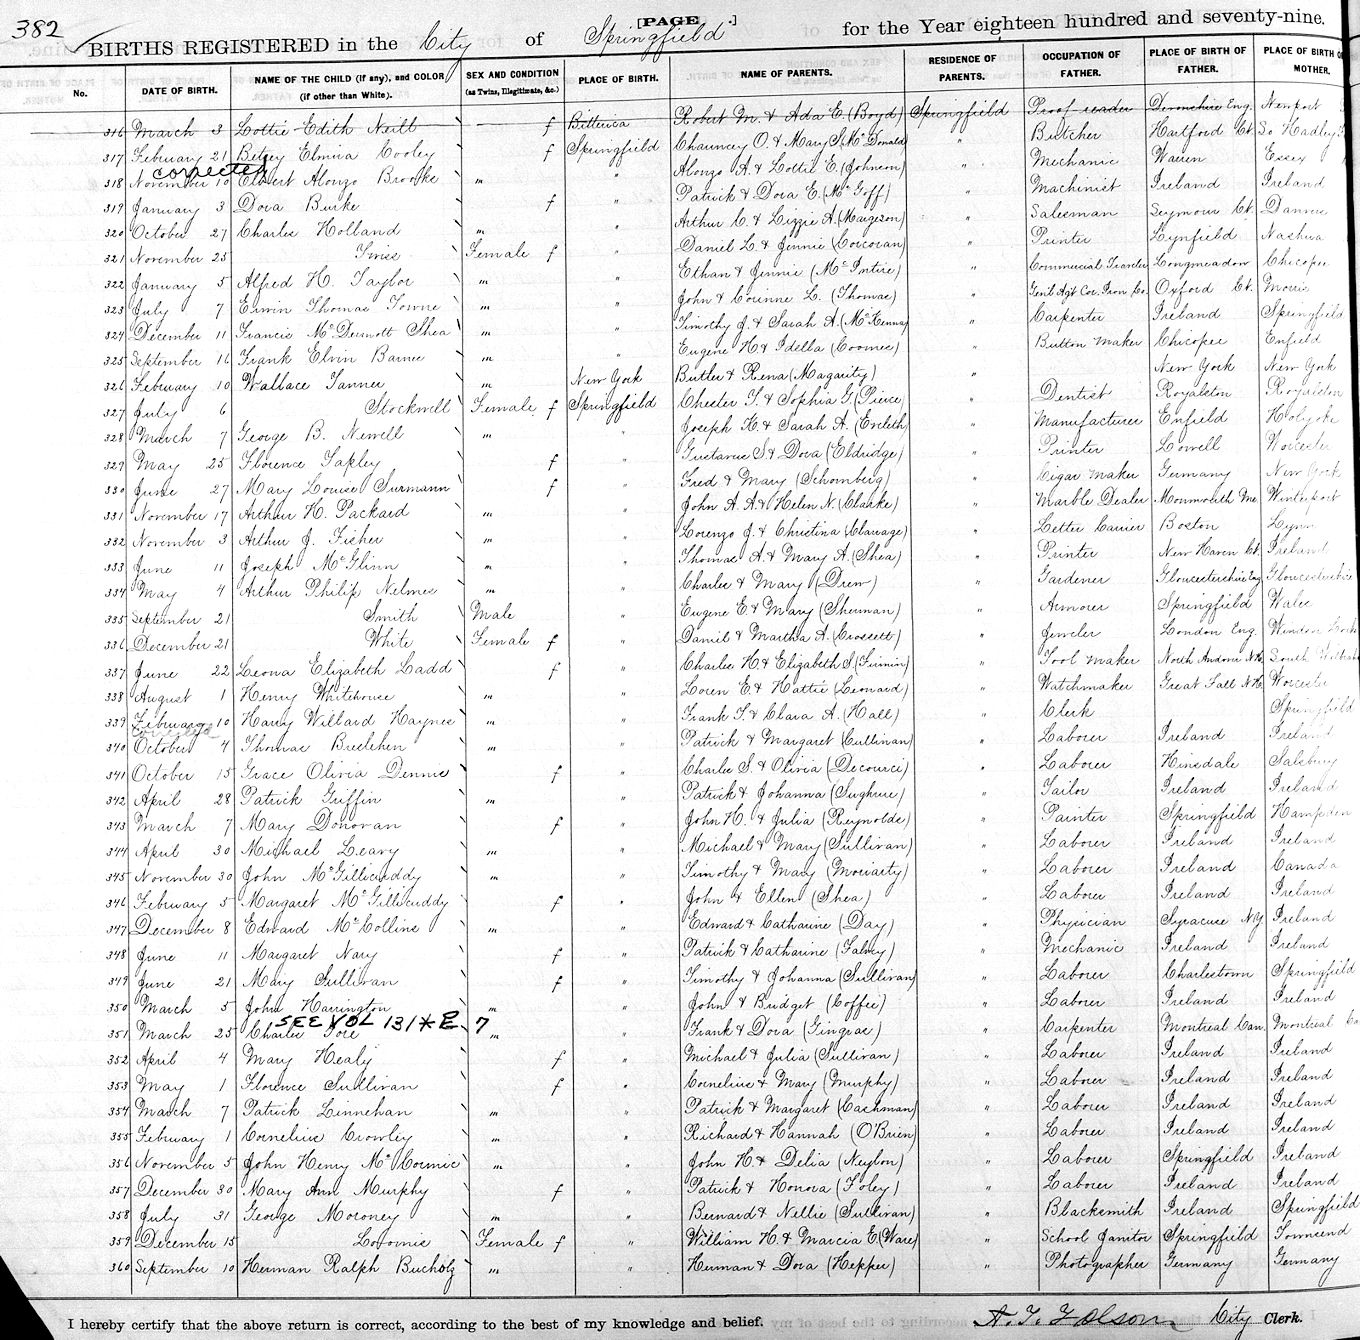 382
[PAGE .]
BIRTHS REGISTERED in the City of Springfield for the Year eighteen hundred and seventy-nine.
No. DATE OF BIRTH. NAME OF THE CHILD (if any), and COLOR (if other than White). SEX AND CONDITION (as Twins, Illegitimate, &c.) PLACE OF BIRTH. NAME OF PARENTS. RESIDENCE OF PARENTS. OCCUPATION OF FATHER. PLACE OF BIRTH OF FATHER. PLACE OF BIRTH OF MOTHER.
316 March 3 Lottie Edith Neill f Billerica Robert M. & Ada E. (Boyd) Springfield Proof-reader Devonshire Eng. Newport
317 February 21 Betsey Elmira Cooley f Springfield Chauncey O. & Mary S. McDonald " Butcher Hartford Ct. So Hadley
corrected
318 November 10 Elbert Alonzo Brooke m " Alonzo A. & Lottie E. (Johnson) " Mechanic Warren Essex
319 January 3 Dora Burke f " Patrick & Dora E. (McGoff) " Machinist Ireland Ireland
320 October 27 Charles Holland m " Arthur C. & Lizzie A. (Margeson) " Salesman Seymour Ct.
321 November 25 Female f " Daniel L. & Jennie (Corcoran) " Printer Lynfield Nashua
322 January 5 Alfred H. Taylor m " Ethan & Jennie (McIntire) " Commercial Traveler Longmeadow Chicopee
323 July 7 Erwin Thomas Towne m " John & Corinne L. (Thomas) " Genl Agt Cor. Iron Co. Oxford Ct. Morris
324 December 11 Francis McDermott Shea m " Timothy J. & Sarah A. (McKenna) " Carpenter Ireland Springfield
325 September 16 Frank Elvin Barnes m " Eugene H & Idella (Coomes) " Button Maker Chicopee Enfield
326 February 10 Wallace Tanner m New York Butler & Rena (Magarity) " New York New York
327 July 6 Stockwell Female f Springfield Chester T. & Sophia G. (Pierce) " Dentist Royalston Royalston
328 March 7 George B. Newell m " Joseph H. & Sarah A. (Eveleth) " Manufacturer Enfield Holyoke
329 May 25 Florence Tapley f " Gustavus S. & Dora (Eldridge) " Printer Lowell Worcester
330 June 27 Mary Louise Surmann f " Fred & Mary (Schomberg) " Cigar Maker Germany New York
331 November 17 Arthur H. Packard m " John A. A. & Helen N. (Clarke) " Marble Dealer Monmouth Me. Winterport
332 November 3 Arthur J. Fisher m " Lorenzo J. & Christina (Clavage) " Letter Carrier Boston Lynn
333 June 11 Joseph McGlinn m " Thomas A. & Mary A. (Shea) " Printer New Haven Ct. Ireland
334 May 4 Arthur Philip Nelmes m " Charles & Mary (Drew) " Gardener Gloucestershire Eng Gloucestershire
335 September 21 Smith Male " Eugene E. & Mary (Sherman) " Armorer Springfield Wales
336 December 21 White Female f " Daniel & Martha A. (Crossett) " Jeweler London Eng. Windsor Locks
337 June 22 Leona Elizabeth Ladd f " Charles H. & Elizabeth S. (Firmin) " Tool Maker North Andover N.H. South
338 August 1 Henry Whitehouse m " Loren E. & Hattie (Leonard) " Watchmaker Great Falls N.H. Worcester
339 February 10 Harry Willard Haynes m " Frank T. & Clara A. (Hall) " Clerk Springfield
corrected
340 October 4 Thomas Buelehen m " Patrick & Margaret (Cullinan) " Laborer Ireland Ireland
341 October 15 Grace Olivia Dennis f " Charles S. & Olivia (Decourci) " Laborer Hinsdale Salsbury
342 April 28 Patrick Griffin m " Patrick & Johanna (Sughrue) " Tailor Ireland Ireland
343 March 7 Mary Donovan f " John H. & Julia (Reynolds) " Painter Springfield Hampden
344 April 30 Michael Leary m " Michael & Mary (Sullivan) " Laborer Ireland Ireland
345 November 30 John McGillicuddy m " Timothy & Mary (Moriarty) " Laborer Ireland Canada
346 February 5 Margaret McGillicuddy f " John & Ellen (Shea) " Laborer Ireland Ireland
347 December 8 Edward McCollins m " Edward & Catharine (Day) " Physician Syracuse N.Y. Ireland
348 June 11 Margaret Nary f " Patrick & Catharine (Falvey) " Mechanic Ireland Ireland
349 June 21 Mary Sullivan f " Timothy & Johanna (Sullivan) " Laborer Charlestown Springfield
350 March 5 John Harrington m " John & Bridget (Coffee) " Laborer Ireland Ireland
SEE VOL 131 * P. 7
351 March 25 Charles m " Frank & Dora (Gingras) " Carpenter Montreal Can. Montreal Ca
352 April 4 Mary Healy f " Michael & Julia (Sullivan) " Laborer Ireland Ireland
353 May 1 Florence Sullivan f " Cornelius & Mary (Murphy) " Laborer Ireland Ireland
354 March 7 Patrick Linnehan m " Patrick & Margaret (Cashman) " Laborer Ireland Ireland
355 February 1 Cornelius Crowley m " Richard & Hannah (O'Brien) " Laborer Ireland Ireland
356 November 5 John Henry McCormic m " John H. & Delia (Neylon) " Laborer Springfield Ireland
357 December 30 Mary Ann Murphy f " Patrick & Honora (Foley) " Laborer Ireland Ireland
358 July 31 George Moroney m " Bernard & Nellie (Sullivan) " Blacksmith Ireland Springfield
359 December 15 Loomis Female f " William H. & Marcia E. (Ware) " School Janitor Springfield Townsend
360 September 10 Herman Ralph Bucholz m " Herman & Dora (Hepper) " Photographer Germany Germany
I hereby certify that the above return is correct, according to the best of my knowledge and belief. A. T. Folsom City Clerk.